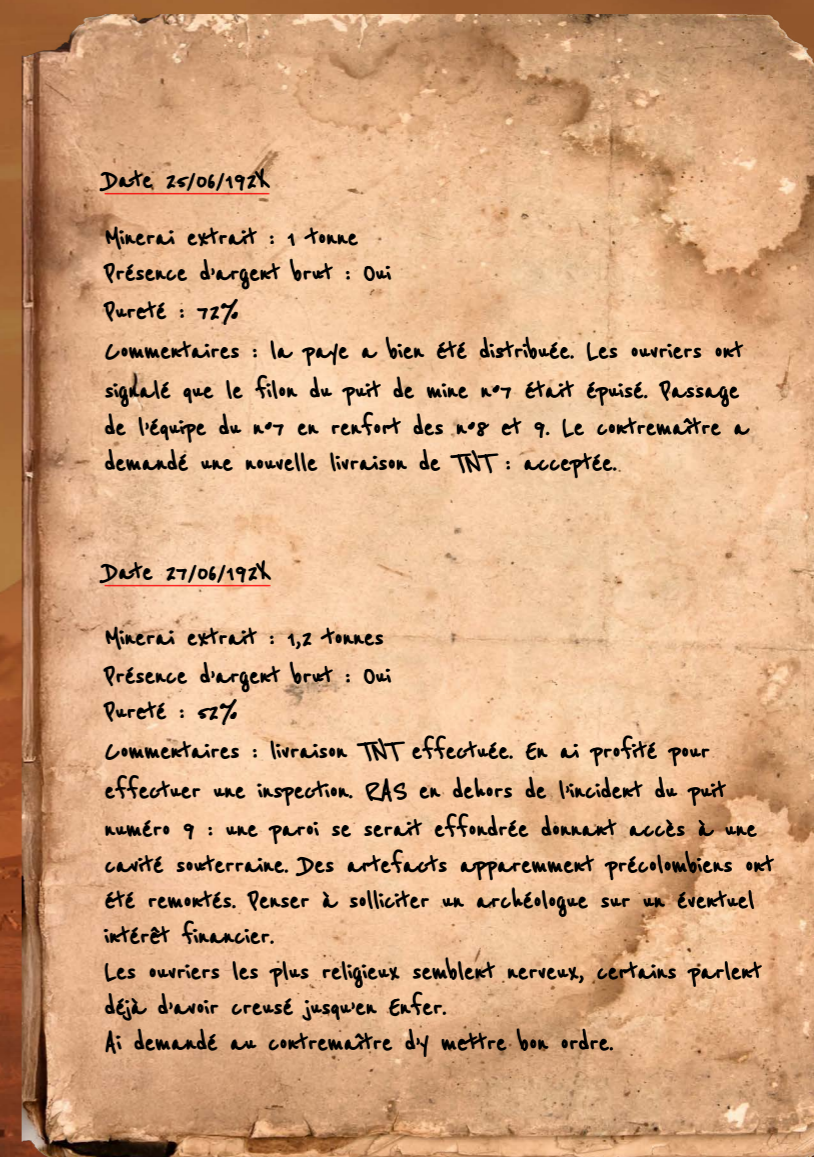 Date 25/06/192X
Minerai extrait : 1 tonne
Présence d'argent brut : Oui
Pureté : 72%
Commentaires : la paye a bien été distribuée. Les ouvriers ont
signalé que le filon du puit de mine n°7 était épuisé. Passage
de l'équipe du n°7 en renfort des n°8 et 9. Le contremaître a
demandé une nouvelle livraison de TNT : acceptée.
Date 27/06/192X
Minerai extrait : 1,2 tonnes
Présence d'argent brut : Oui
Pureté : 52%
Commentaires : livraison TNT effectuée. En ai profité pour
effectuer une inspection. RAS en dehors de l'incident du puit
numéro 9 : une paroi se serait effondrée donnant accès à une
cavité souterraine. Des artefacts apparemment précolombiens ont
été remontés. Penser à solliciter un archéologue sur un éventuel
intérêt financier.
Les ouvriers les plus religieux semblent nerveux, certains parlent
déjà d'avoir creusé jusqu'en Enfer.
Ai demandé au contremaître d'y mettre bon ordre.